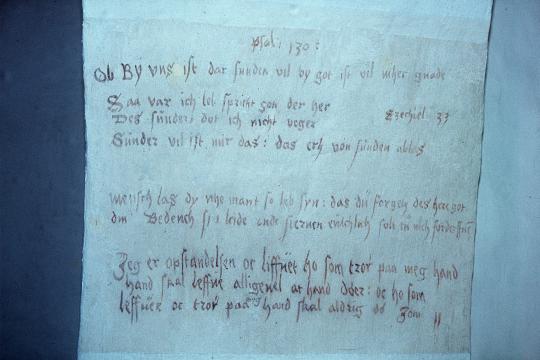 psal: 130:
Ob By vns ist dar sunden vil by got ist vil mher gnade
Saa var ich leb spricht gott der her
Des sünders dot ich nicht beger Ezechiel 33
Sünder vil ist nur das: das erh von sünden ablas
mensch las dy nhe mant so leb syn: das du forgest des here got
din Bedench si leide unde sterven
Jeg er opstandelsen oc liffuet ho som tror paa meg hand
hand skal leffue alligeuel at hand døer: oc ho som
leffuer oc tror paa meg hand skal aldrig dø Jom 11